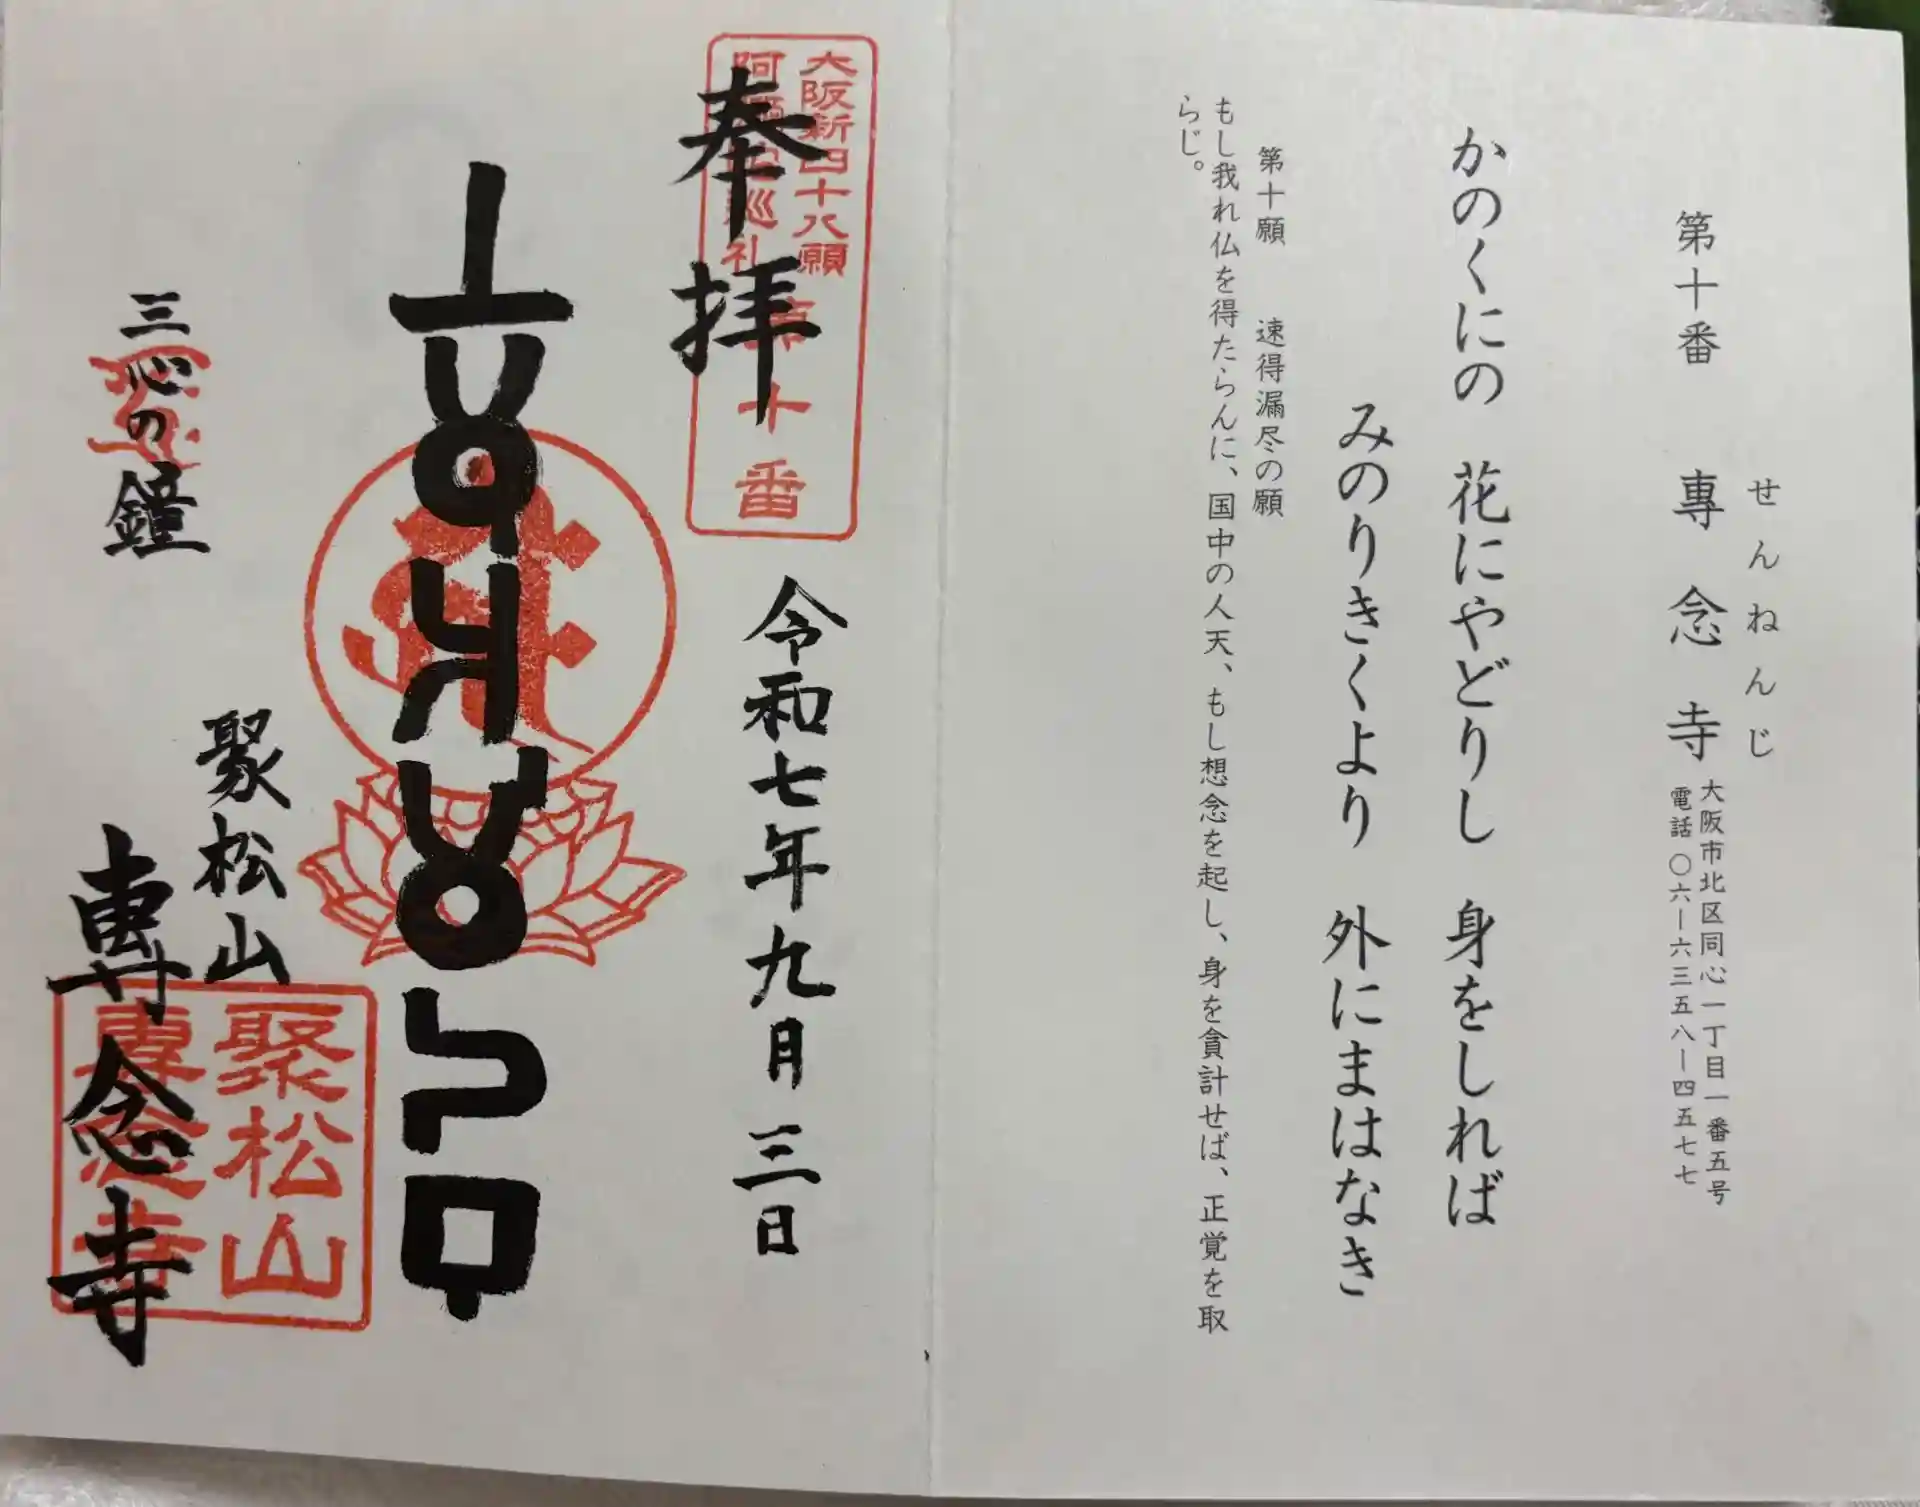 第十番 專念寺
せんねんじ
大阪市北区同心一丁目一番五号
電話〇六ー六三五八ー四五七七
かのくにの 花にやどりし 身をしれば
みのりきくより 外にまはなき
第十願 速得漏尽の願
もし我れ仏を得たらんに、国中の人天、もし想念を起し、身を貪計せば、正覚を取
らじ。
大阪新四十八願
阿弥陀巡礼
第十番
奉拝
令和七年九月三日
三心の鐘
聚松山
專念寺
聚松山
專念寺